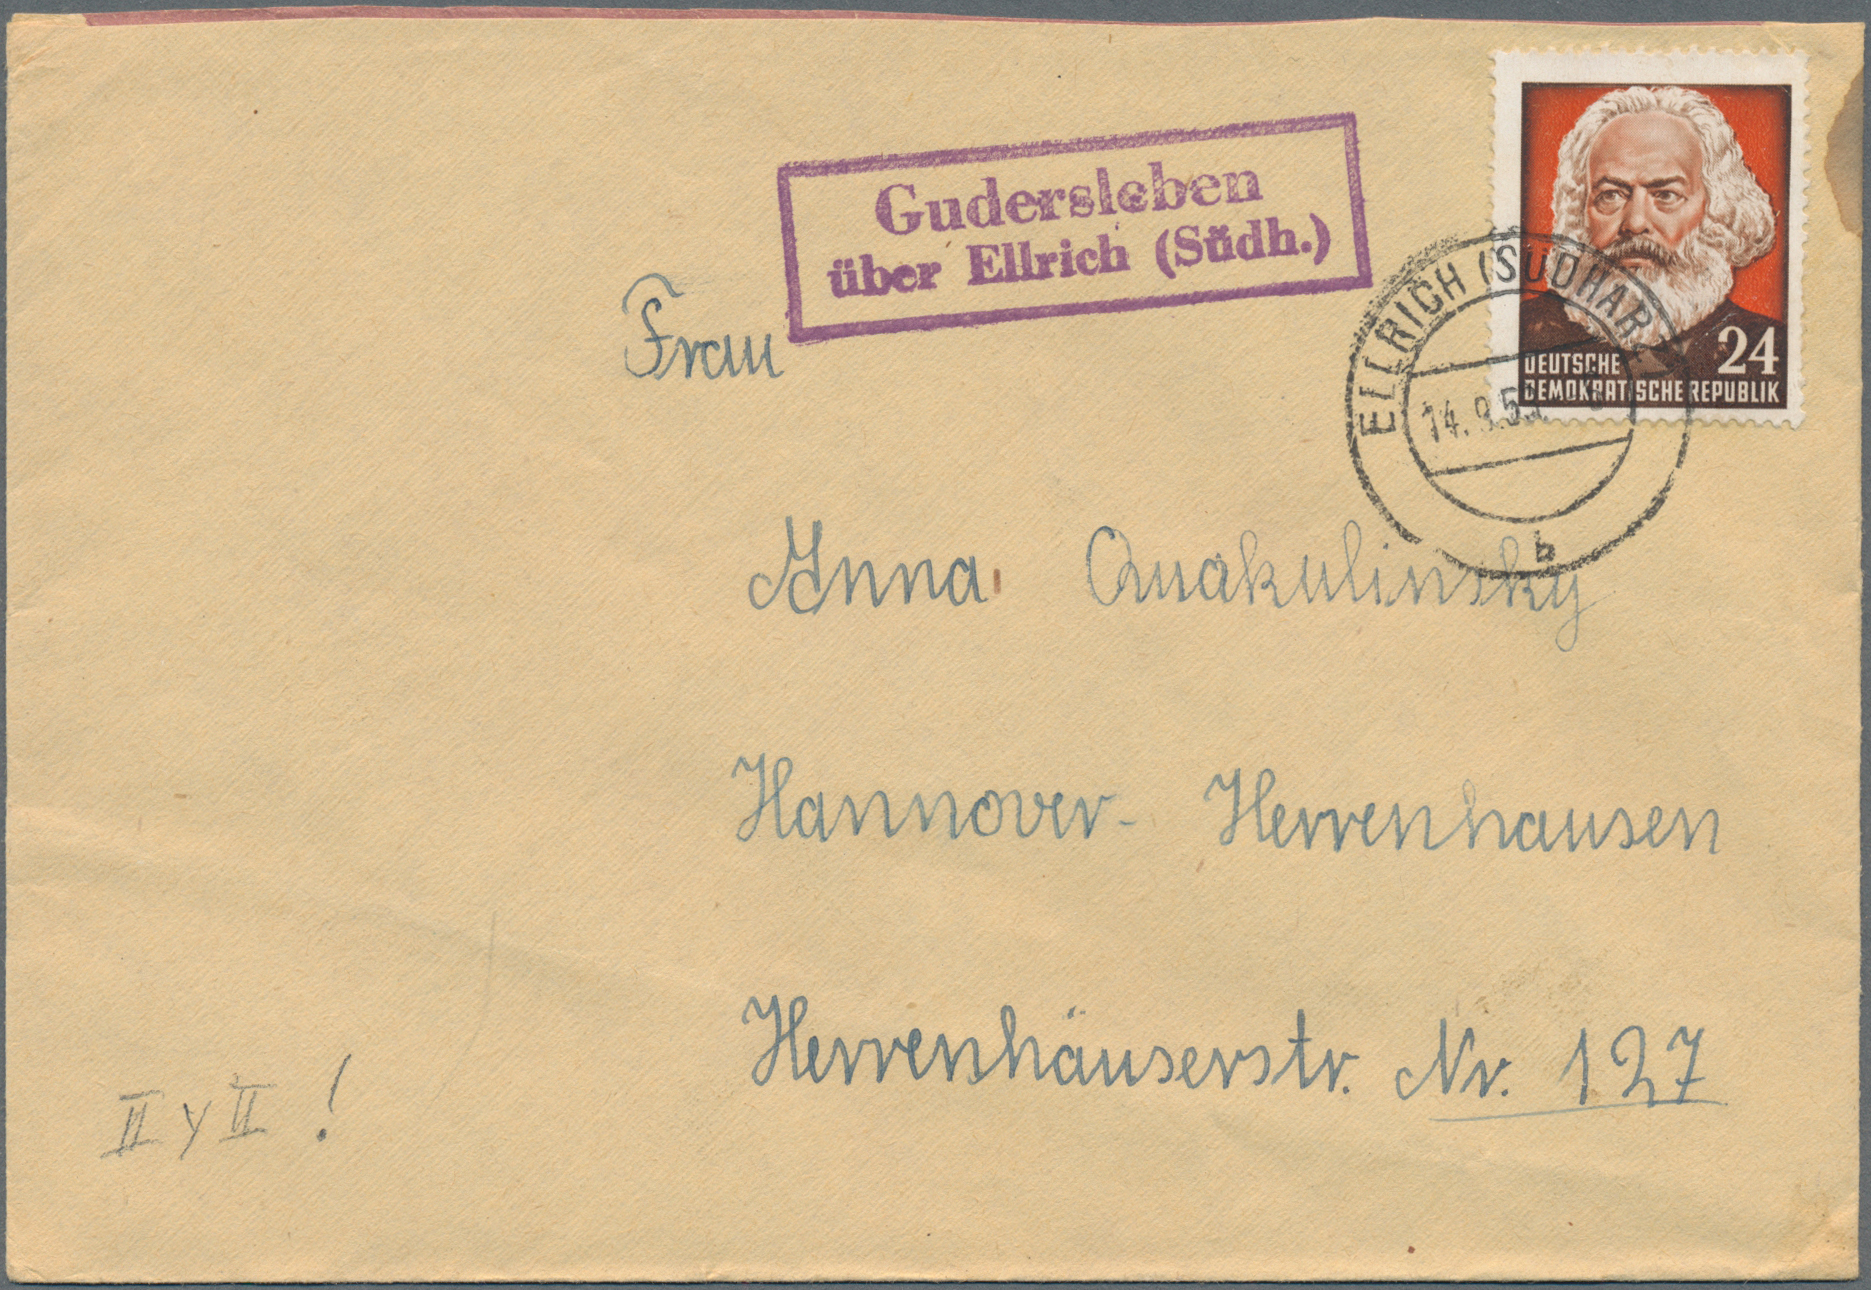 Gudersleben
über Ellrich (Südh.)
24
DEUTSCHE
DEMOKRATISCHE REPUBLIK
ELLRICH (SÜDHARZ)
b
Frau
Anna Quakulinsky
Hannover- Herrenhausen
Herrenhäuserstr. Nr. 127
II y II !